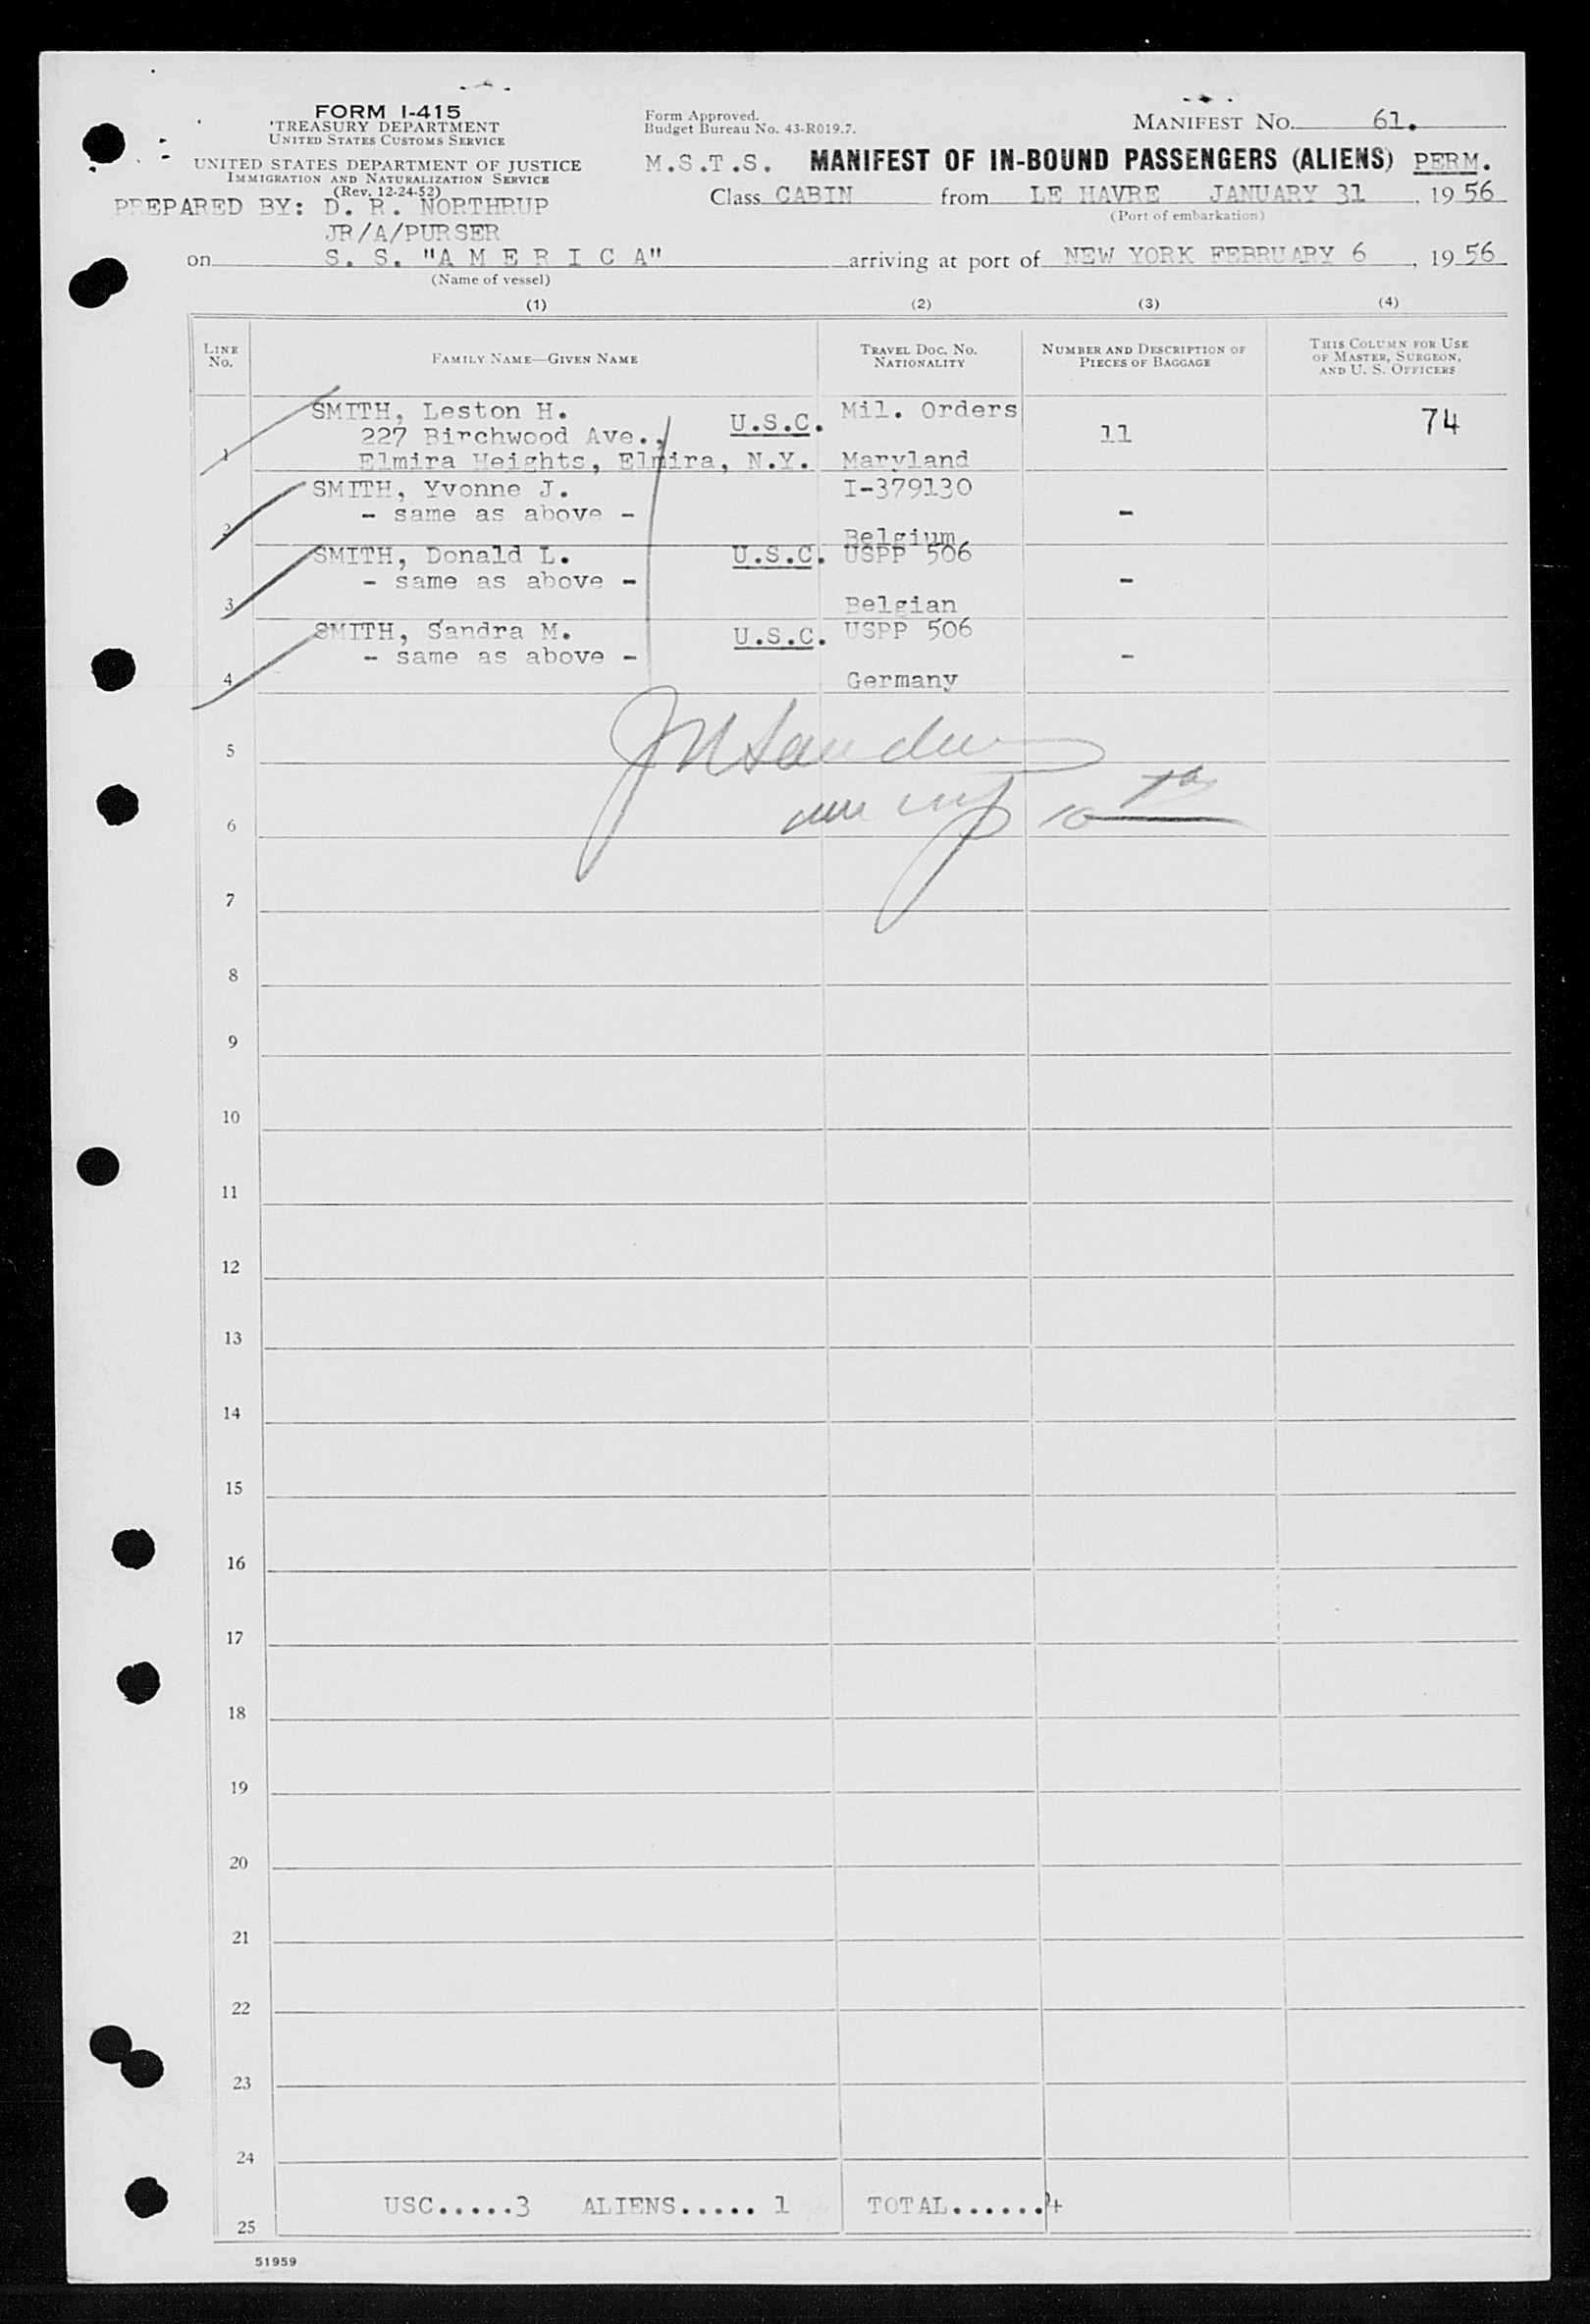 FORM I-415
TREASURY DEPARTMENT
UNITED STATES CUSTOMS SERVICE
UNITED STATES DEPARTMENT OF JUSTICE
IMMIGRATION AND NATURALIZATION SERVICE
(Rev. 12-24-52)
Form Approved.
Budget Bureau No. 43-R019.7.
MANIFEST NO. 61.
M.S.T.S. MANIFEST OF IN-BOUND PASSENGERS (ALIENS) PERM.
Class CABIN from LE HAVRE JANUARY 31, 1956
(Port of embarkation)
PREPARED BY: D. R. NORTHRUP
JR/A/PURSER
on S. S. "A M E R I C A" arriving at port of NEW YORK FEBRUARY 6, 1956
(Name of vessel)
(1) (2) (3) (4)
LINE NO. FAMILY NAME—GIVEN NAME TRAVEL DOC. NO. NATIONALITY NUMBER AND DESCRIPTION OF PIECES OF BAGGAGE THIS COLUMN FOR USE OF MASTER, SURGEON, AND U. S. OFFICERS
SMITH, Leston H. Mil. Orders
227 Birchwood Ave., U.S.C. 11 74
1 Elmira Heights, Elmira, N.Y. Maryland
SMITH, Yvonne J. I-379130
- same as above - -
2 Belgium
SMITH, Donald L. U.S.C. USPP 506
- same as above - -
3 Belgian
SMITH, Sandra M. U.S.C. USPP 506
- same as above - -
4 Germany
5
6
7
8
9
10
11
12
13
14
15
16
17
18
19
20
21
22
23
24
USC.....3 ALIENS..... 1 TOTAL......4
25
51959